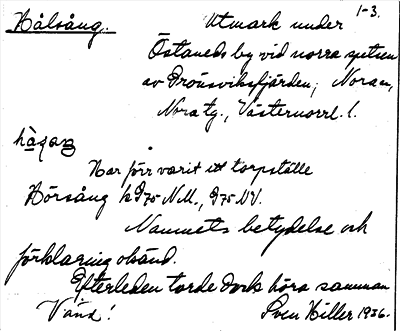 1-3.
Hålsång. Utmark under
Östaneds by vid norra spetsen
av Drönsviksfjärden; Nora sn,
Nora tg., Västernorrl. l.
Har förr varit ett torpställe
Hörsång k D75 N.M., D75 NV.
Namnets betydelse och
förklaring okänd.
Efterleden torde dock höra samman
Vänd! Sven Hiller 1936.